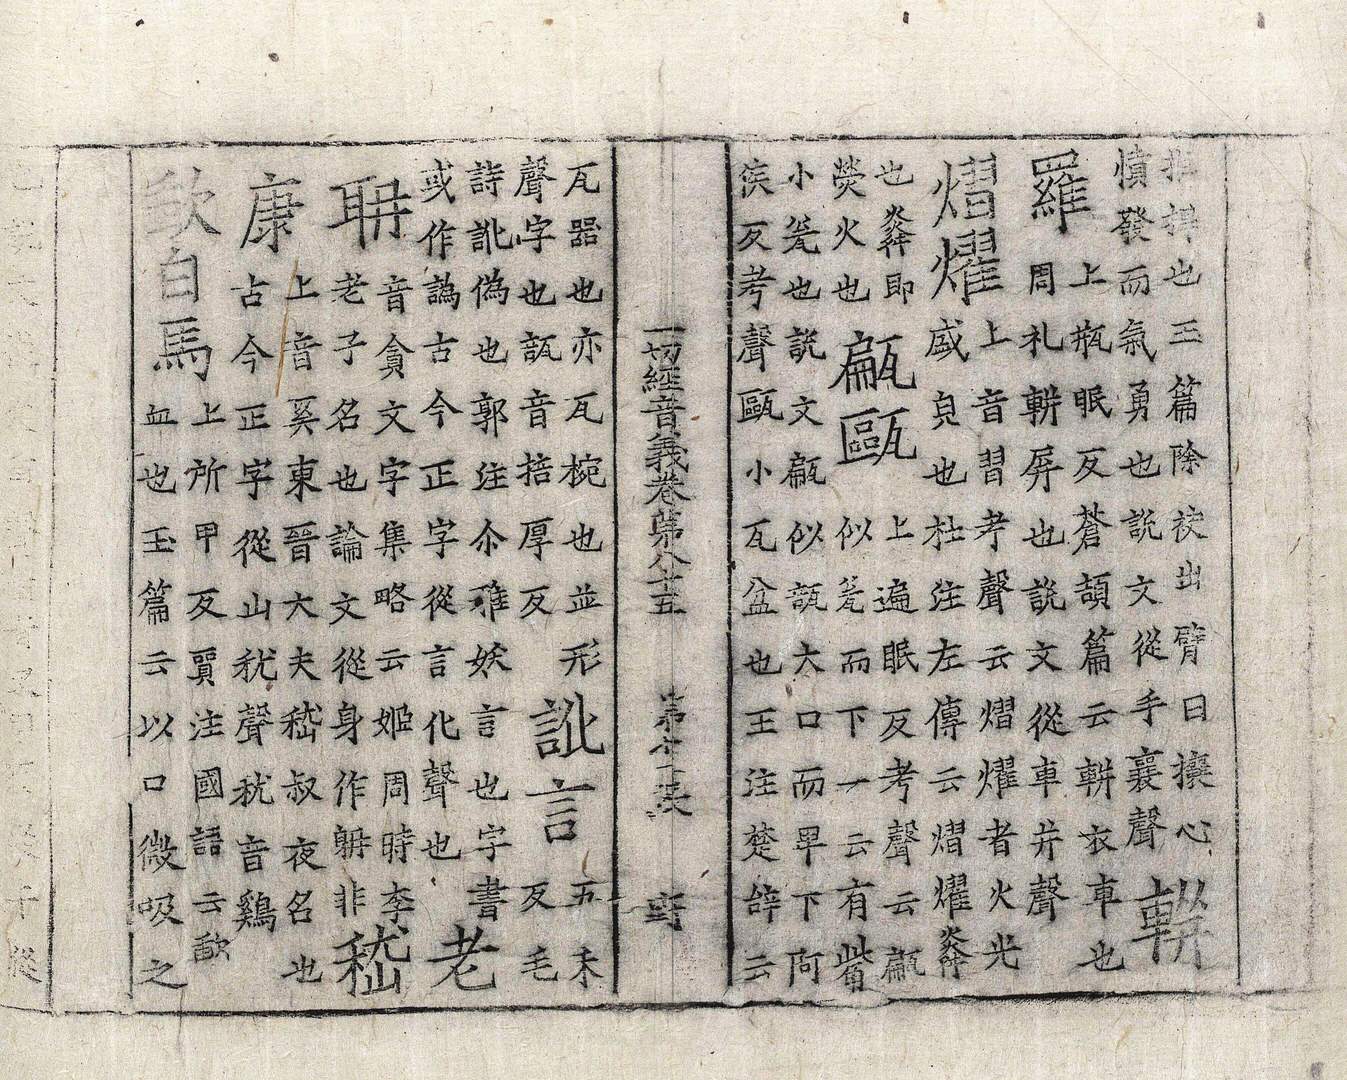 也王篇除袂出臂曰攘心
憤發而氣勇也説文從手襄聲
軿
羅
上瓶眠反蒼頡篇云軿衣車也
周礼軿屏也説文從車并聲
熠燿
上音習考聲云熠燿者火光
盛皃也杜注左傳云熠燿㷠
也㷠即
熒火也
甂甌
上遍眠反考聲云甂
似瓮而下一云有觜
小瓮也説文甂似瓿大口而卑下阿
侯反考聲甌小瓦盆也王注楚辞云
一切經音義卷第八十五 第十一張 野
瓦器也亦瓦椀也並形
聲字也瓿音掊厚反
訛言
五禾
反毛
詩訛偽也郭注尒雅妖言也字書
或作譌古今正字從言化聲也
老
聃
音貪文字集略云姬周時李
老子名也論文從身作躭非
嵇
康
上音奚東晉大夫嵇叔夜名也
古今正字從山𥝌聲𥝌音鷄
歃白馬
上所甲反賈注國語云歃
血也玉篇云以口微吸之